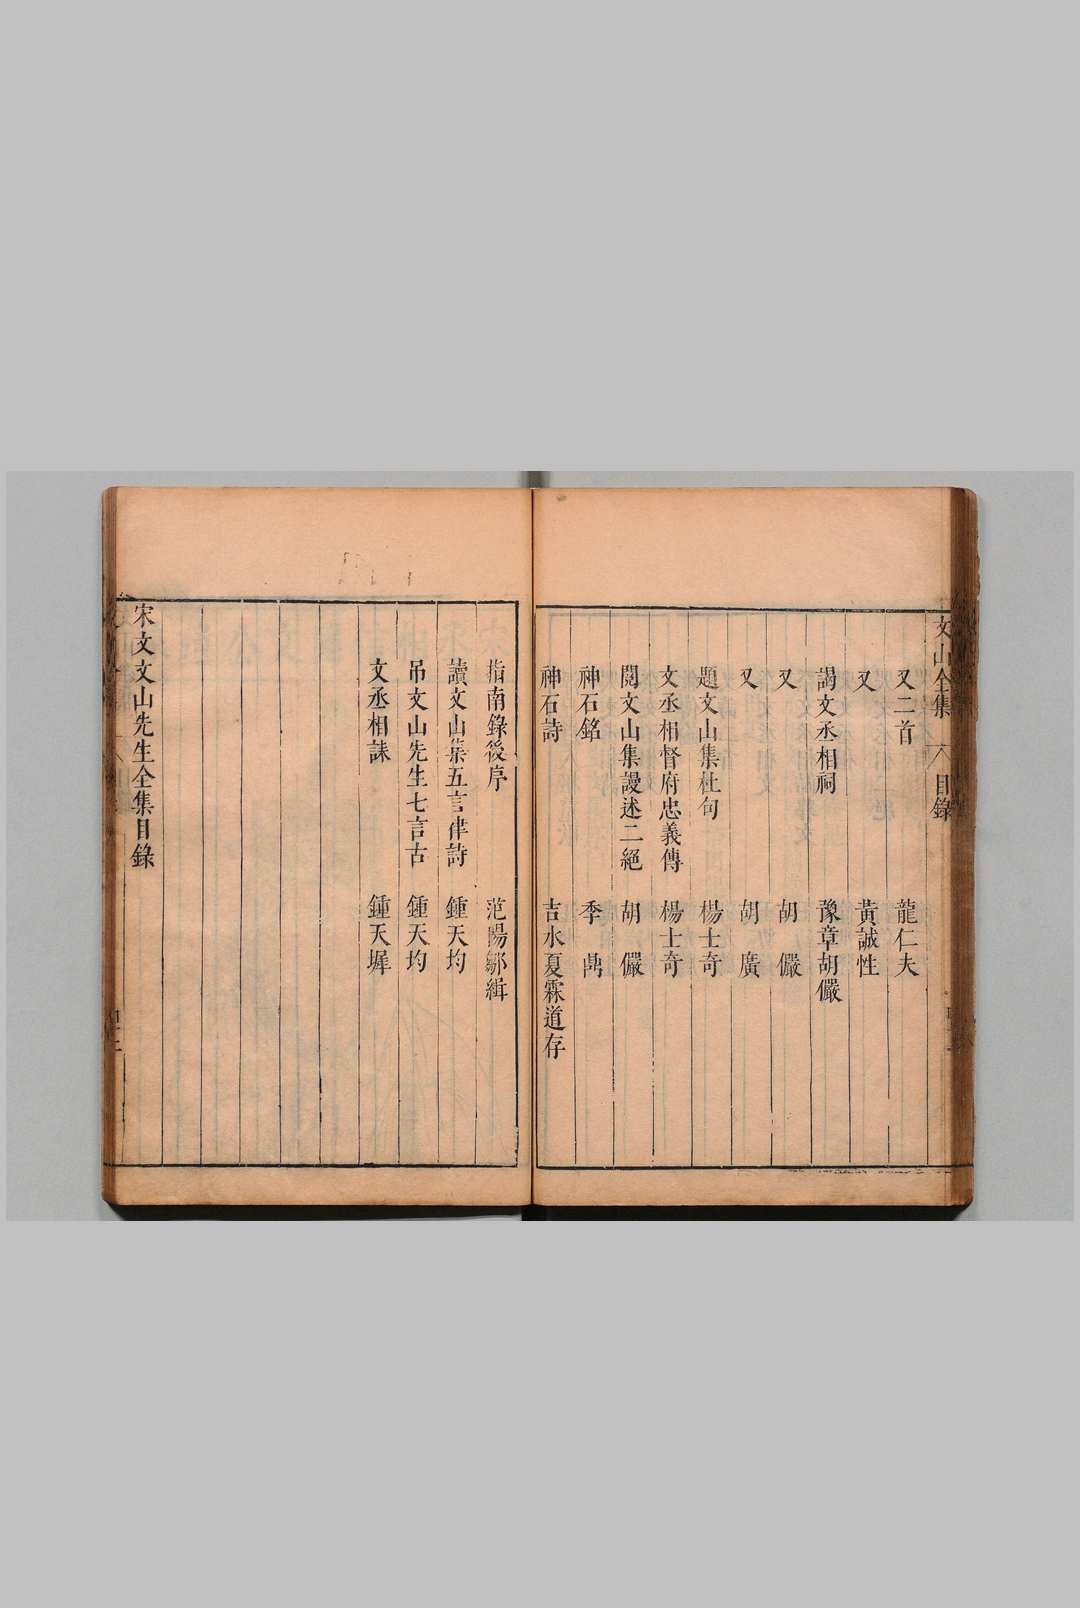 文山全集 目錄
又二首 龍仁夫
又 黃誠性
謁文丞相祠 豫章胡儼
又 胡儼
又 胡廣
題文山集杜句 楊士奇
文丞相督府忠義傳 楊士奇
閱文山集謾述二絕 胡儼
神石銘 季
神石詩 吉水夏霖道存
指南錄後序 范陽鄒緝
讀文山集五言律詩 鍾天均
吊文山先生七言古 鍾天均
文丞相誄 鍾天墀
宋文文山先生全集目錄